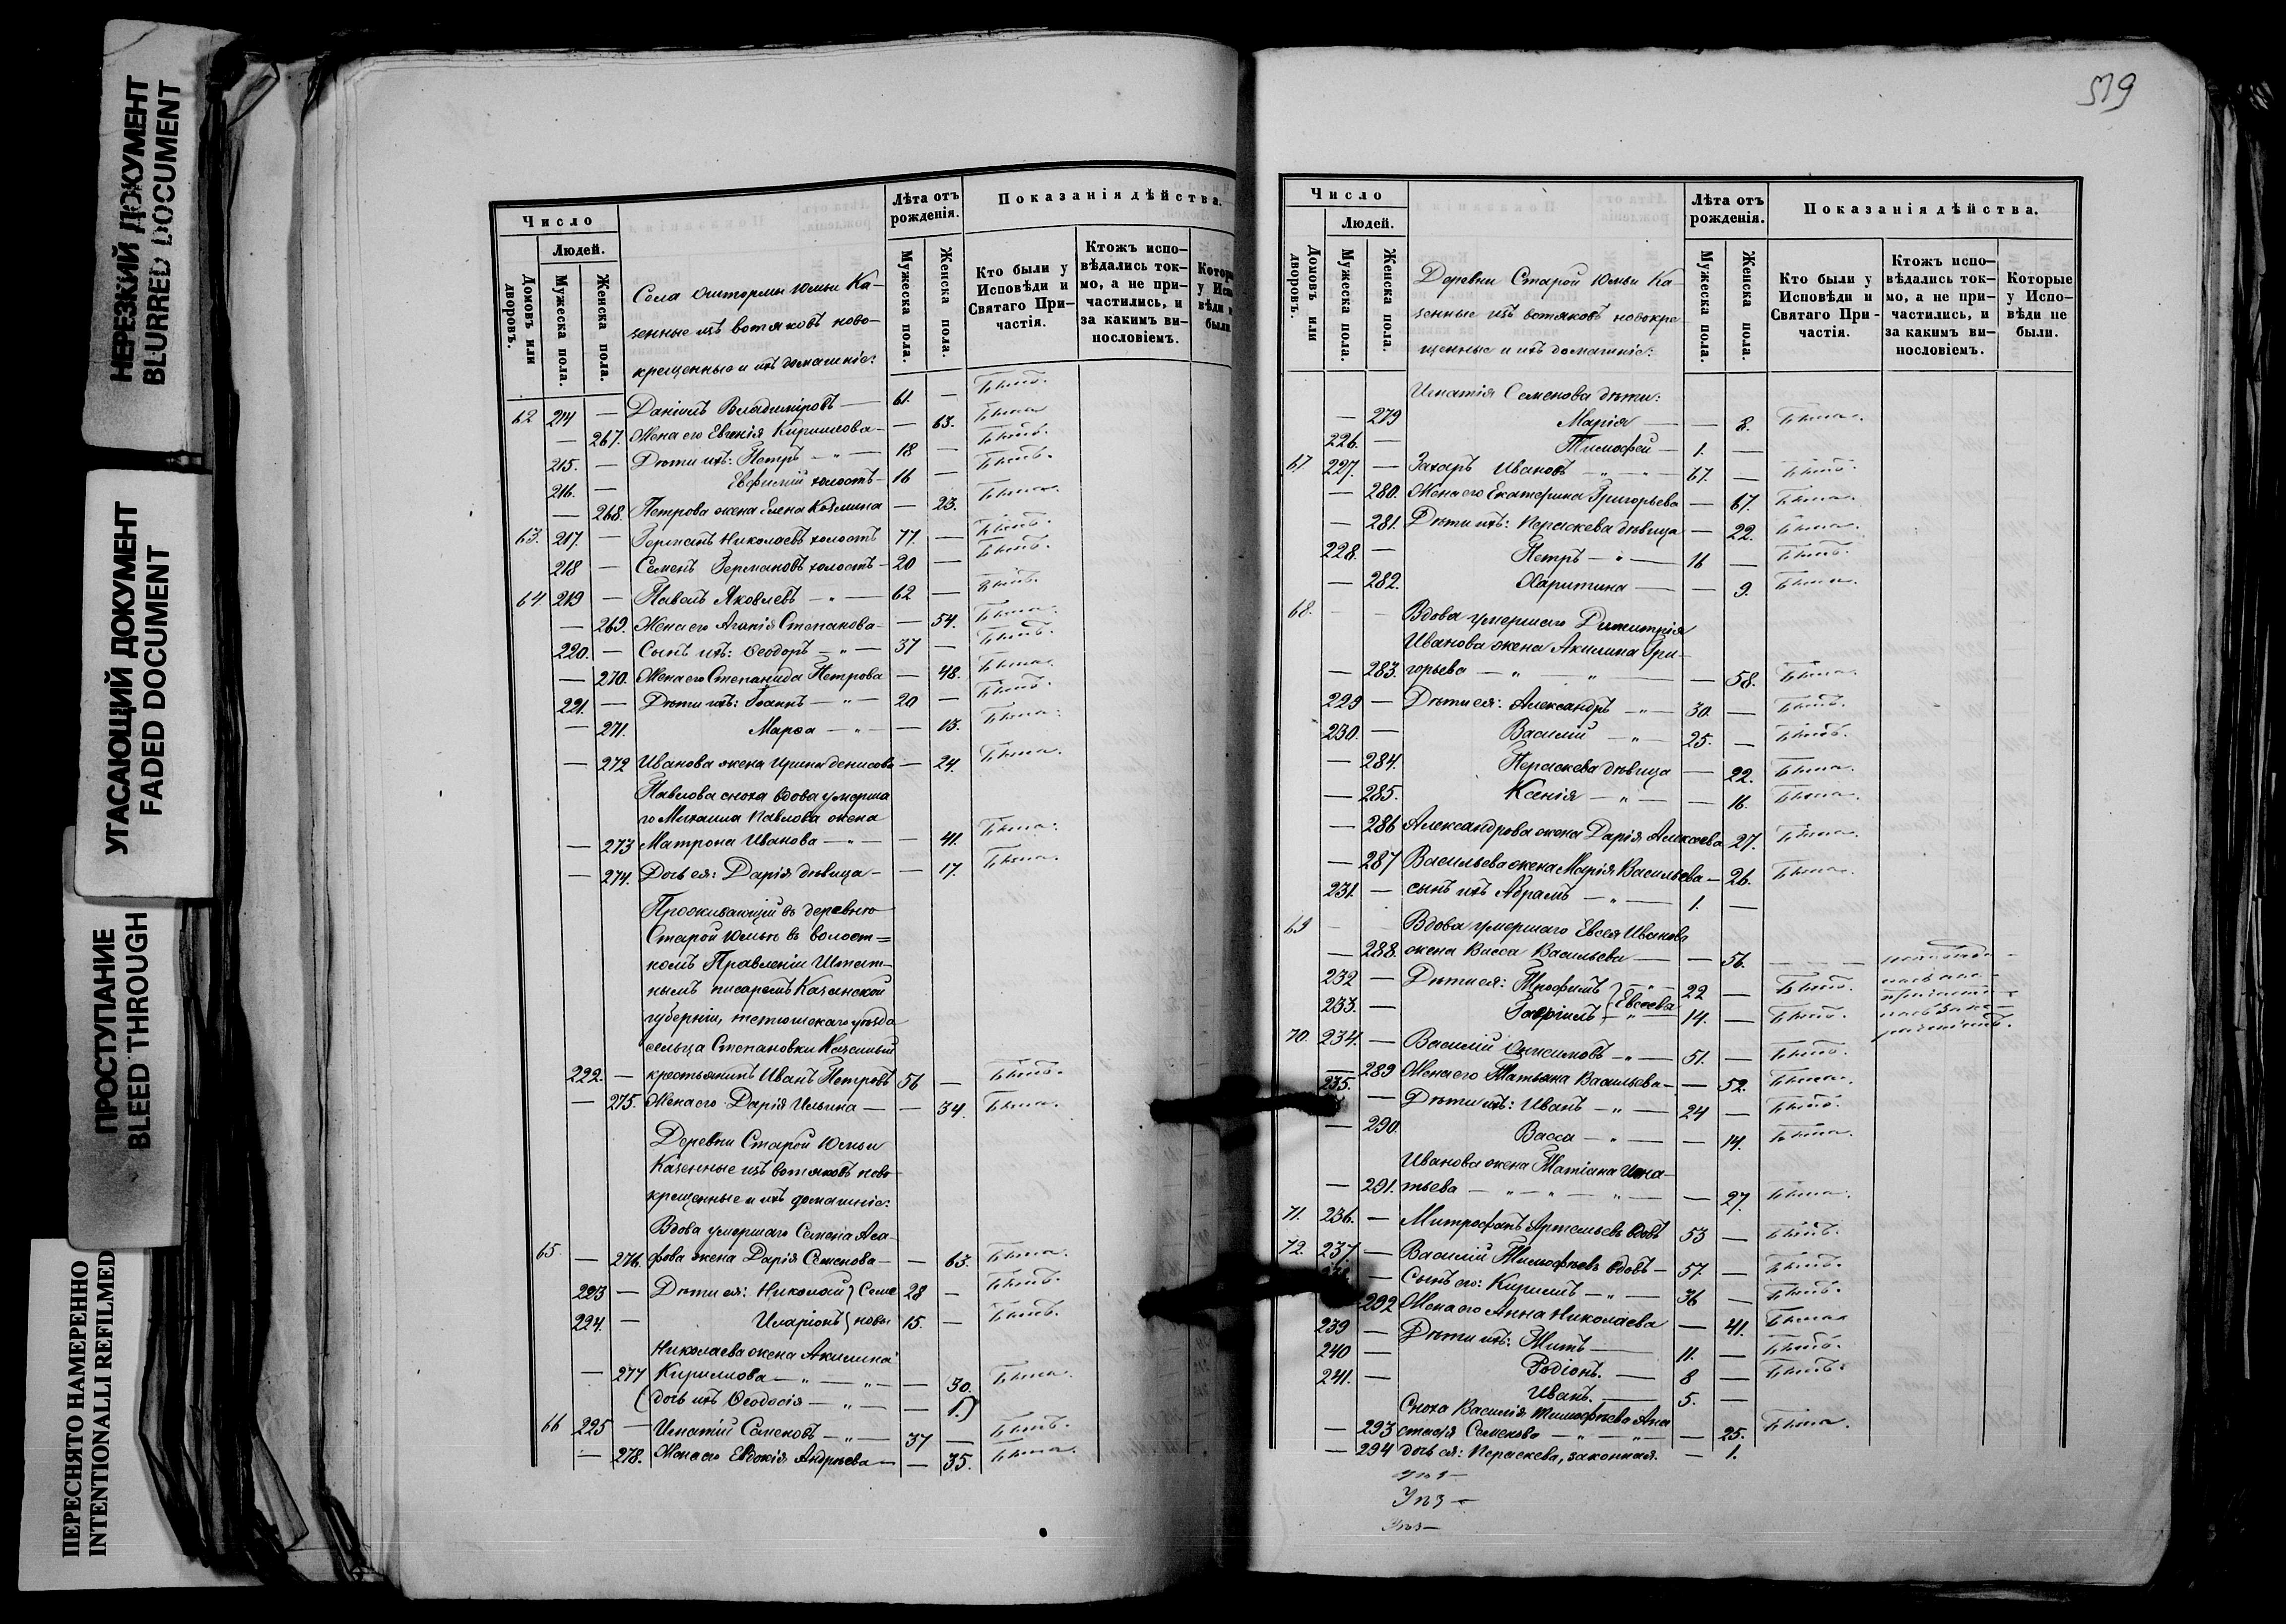 НЕРЕЗКИЙ ДОКУМЕНТ
BLURRED DOCUMENT
УГАСАЮЩИЙ ДОКУМЕНТ
FADED DOCUMENT
ПРОСТУПАНИЕ
BLEED THROUGH
ПЕРЕСНЯТО НАМЕРЕННО
INTENTIONALLI REFILMED
Число
Людей.
Домовъ или дворовъ.
Мужеска пола.
Женска пола.
Села Юмьи Ка-
зенные изъ вотяковъ ново-
крещенные и ихъ домашніе:
Лѣта отъ рожденія.
Мужеска пола.
Женска пола.
Показанія дѣйства.
Кто были у Исповѣди и Святаго При-частія.
Ктожъ испо-вѣдались ток-мо, а не при-частились, и за какимъ ви-нословіемъ.
62 214 — Даніилъ Владиміровъ — 61. — Былъ.
— 267. Жена его Евгенія Кириллова — — 63. Была
215. — Дѣти ихъ: Петръ — „ — 18 — Былъ.
216. — Евфимій холостъ — 16 — Былъ.
— 268. Петрова жена Елена Козмина — 23. Была.
63. 217. — Германъ Николаевъ холостъ 77. — Былъ.
218 — Семенъ Германовъ холостъ — 20 — Былъ.
64. 219 — Павелъ Яковлевъ — „ — 62 — Былъ.
— 269. Жена его Агапія Степанова — — 54. Была.
220. — Сынъ ихъ: Ѳеодоръ — „ — 37 — Былъ.
— 270. Жена его Степанида Петрова — 48. Была.
221. — Дѣти ихъ: Іоаннъ — „ — 20 — Былъ.
— 271. Марѳа — „ — — 13. Была.
— 272 Иванова жена Ирина Денисова — 24. Была.
Павлова сноха вдова умерша
го Михаила Павлова жена
— 273 Матрона Иванова — „ — — 41. Была.
— 274. Дочь ея: Дарія дѣвица — — 17. Была.
Проживающій въ деревнѣ
Старой Юмьѣ въ волост=
номъ Правленіи Штат-
нымъ писаремъ Казанской
губерніи, тетюшскаго уѣзда
сельца Степановки Казенный
222. — крестьянинъ Иванъ Петровъ 56 — Былъ.
— 275. Жена его Дарія Ильина — — 34. Была.
Деревни Старой Юмьи
Казенные изъ вотяковъ ново
крещенные и ихъ домашніе:
Вдова умершаго Семена Ага-
65. — 276. фова жена Дарія Семенова — — 63. Была.
223 — Дѣти ея: Николай } Семе 28 — Былъ.
224. — Иларіонъ } новы 15. — Былъ.
Николаева жена Акилина
— 277 Кириллова — „ — „ — — 30. Была.
(дочь ихъ Ѳеодосія — „ — — 1.)
66 225 — Игнатій Семеновъ — „ — 37 — Былъ.
— 278. Жена его Евдокія Андреева — — 35. Была.
519
Число
Людей.
Домовъ или дворовъ.
Мужеска пола.
Женска пола.
Деревни Старой Юмьи Ка-
зенные изъ вотяковъ новокре
щенные и ихъ домашніе:
Лѣта отъ рожденія.
Мужеска пола.
Женска пола.
Показанія дѣйства.
Кто были у Исповѣди и Святаго При-частія.
Ктожъ испо-вѣдались ток-мо, а не при-частились, и за какимъ ви-нословіемъ.
Которые у Испо-вѣди не были.
Игнатія Семенова дѣти:
— 279 Марія — — 8. Была.
226. — Тимофей — 1. —
67 227. — Захаръ Ивановъ — „ — 67. — Былъ.
— 280. Жена его Екатерина Григорьева — 67. Была.
— 281. Дѣти ихъ: Параскева дѣвица — 22. Была.
228. — Петръ — „ — 16 — Былъ.
— 282. Харитина — — 9. Была.
68. — — Вдова умершаго Димитрія
Иванова жена Акилина Гри-
— 283. горьева — „ — „ — — 58. Была.
229 — Дѣти ея: Александръ — „ — 30. — Былъ.
230. — Василій — „ — 25. — Былъ.
— 284. Параскева дѣвица — 22. Была.
— 285. Ксенія — „ — — 16. Была.
— 286 Александрова жена Дарія Алексѣева 27. Была.
— 287 Васильева жена Марія Васильева — 26. Была.
231. — сынъ ихъ Абрамъ — „ — 1. —
69 — — Вдова умершаго Евсея Иванова
— 288. жена Васса Васильева — — 56.
232 — Дѣти ея: Трофимъ } Евсеева 22 — Былъ.
233. — Гавріилъ } — „ — 14. — Былъ.
70. 234. — Василій — „ — 51. — Былъ.
— 289 Жена его Татьяна Васильева — — 52. Была.
235. — Дѣти ихъ: Иванъ — „ — 24 — Былъ.
— 290. Васса — „ — — 14. Была.
Иванова жена Татіана Игна-
— 291. тьева — „ — „ — „ — — 27. Была.
71. 236. — Митрофанъ Артемьевъ вдовъ 53 — Былъ.
72. 237. — Василій Тимофѣевъ вдовъ — 57. — Былъ.
— Сынъ его: Кириллъ — „ — 36 — Былъ.
292 Жена его Анна Николаева — 41. Была
239 — Дѣти ихъ: Титъ — 11. — Былъ.
240 — Родіонъ. — 8 — Былъ.
241. — Иванъ. — 5. —
Сноха Василія Тимофѣева Ана
— 293 стасія Семенова — „ — „ — — 25. Была.
— 294 дочь ея: Параскева, законная. — 1.